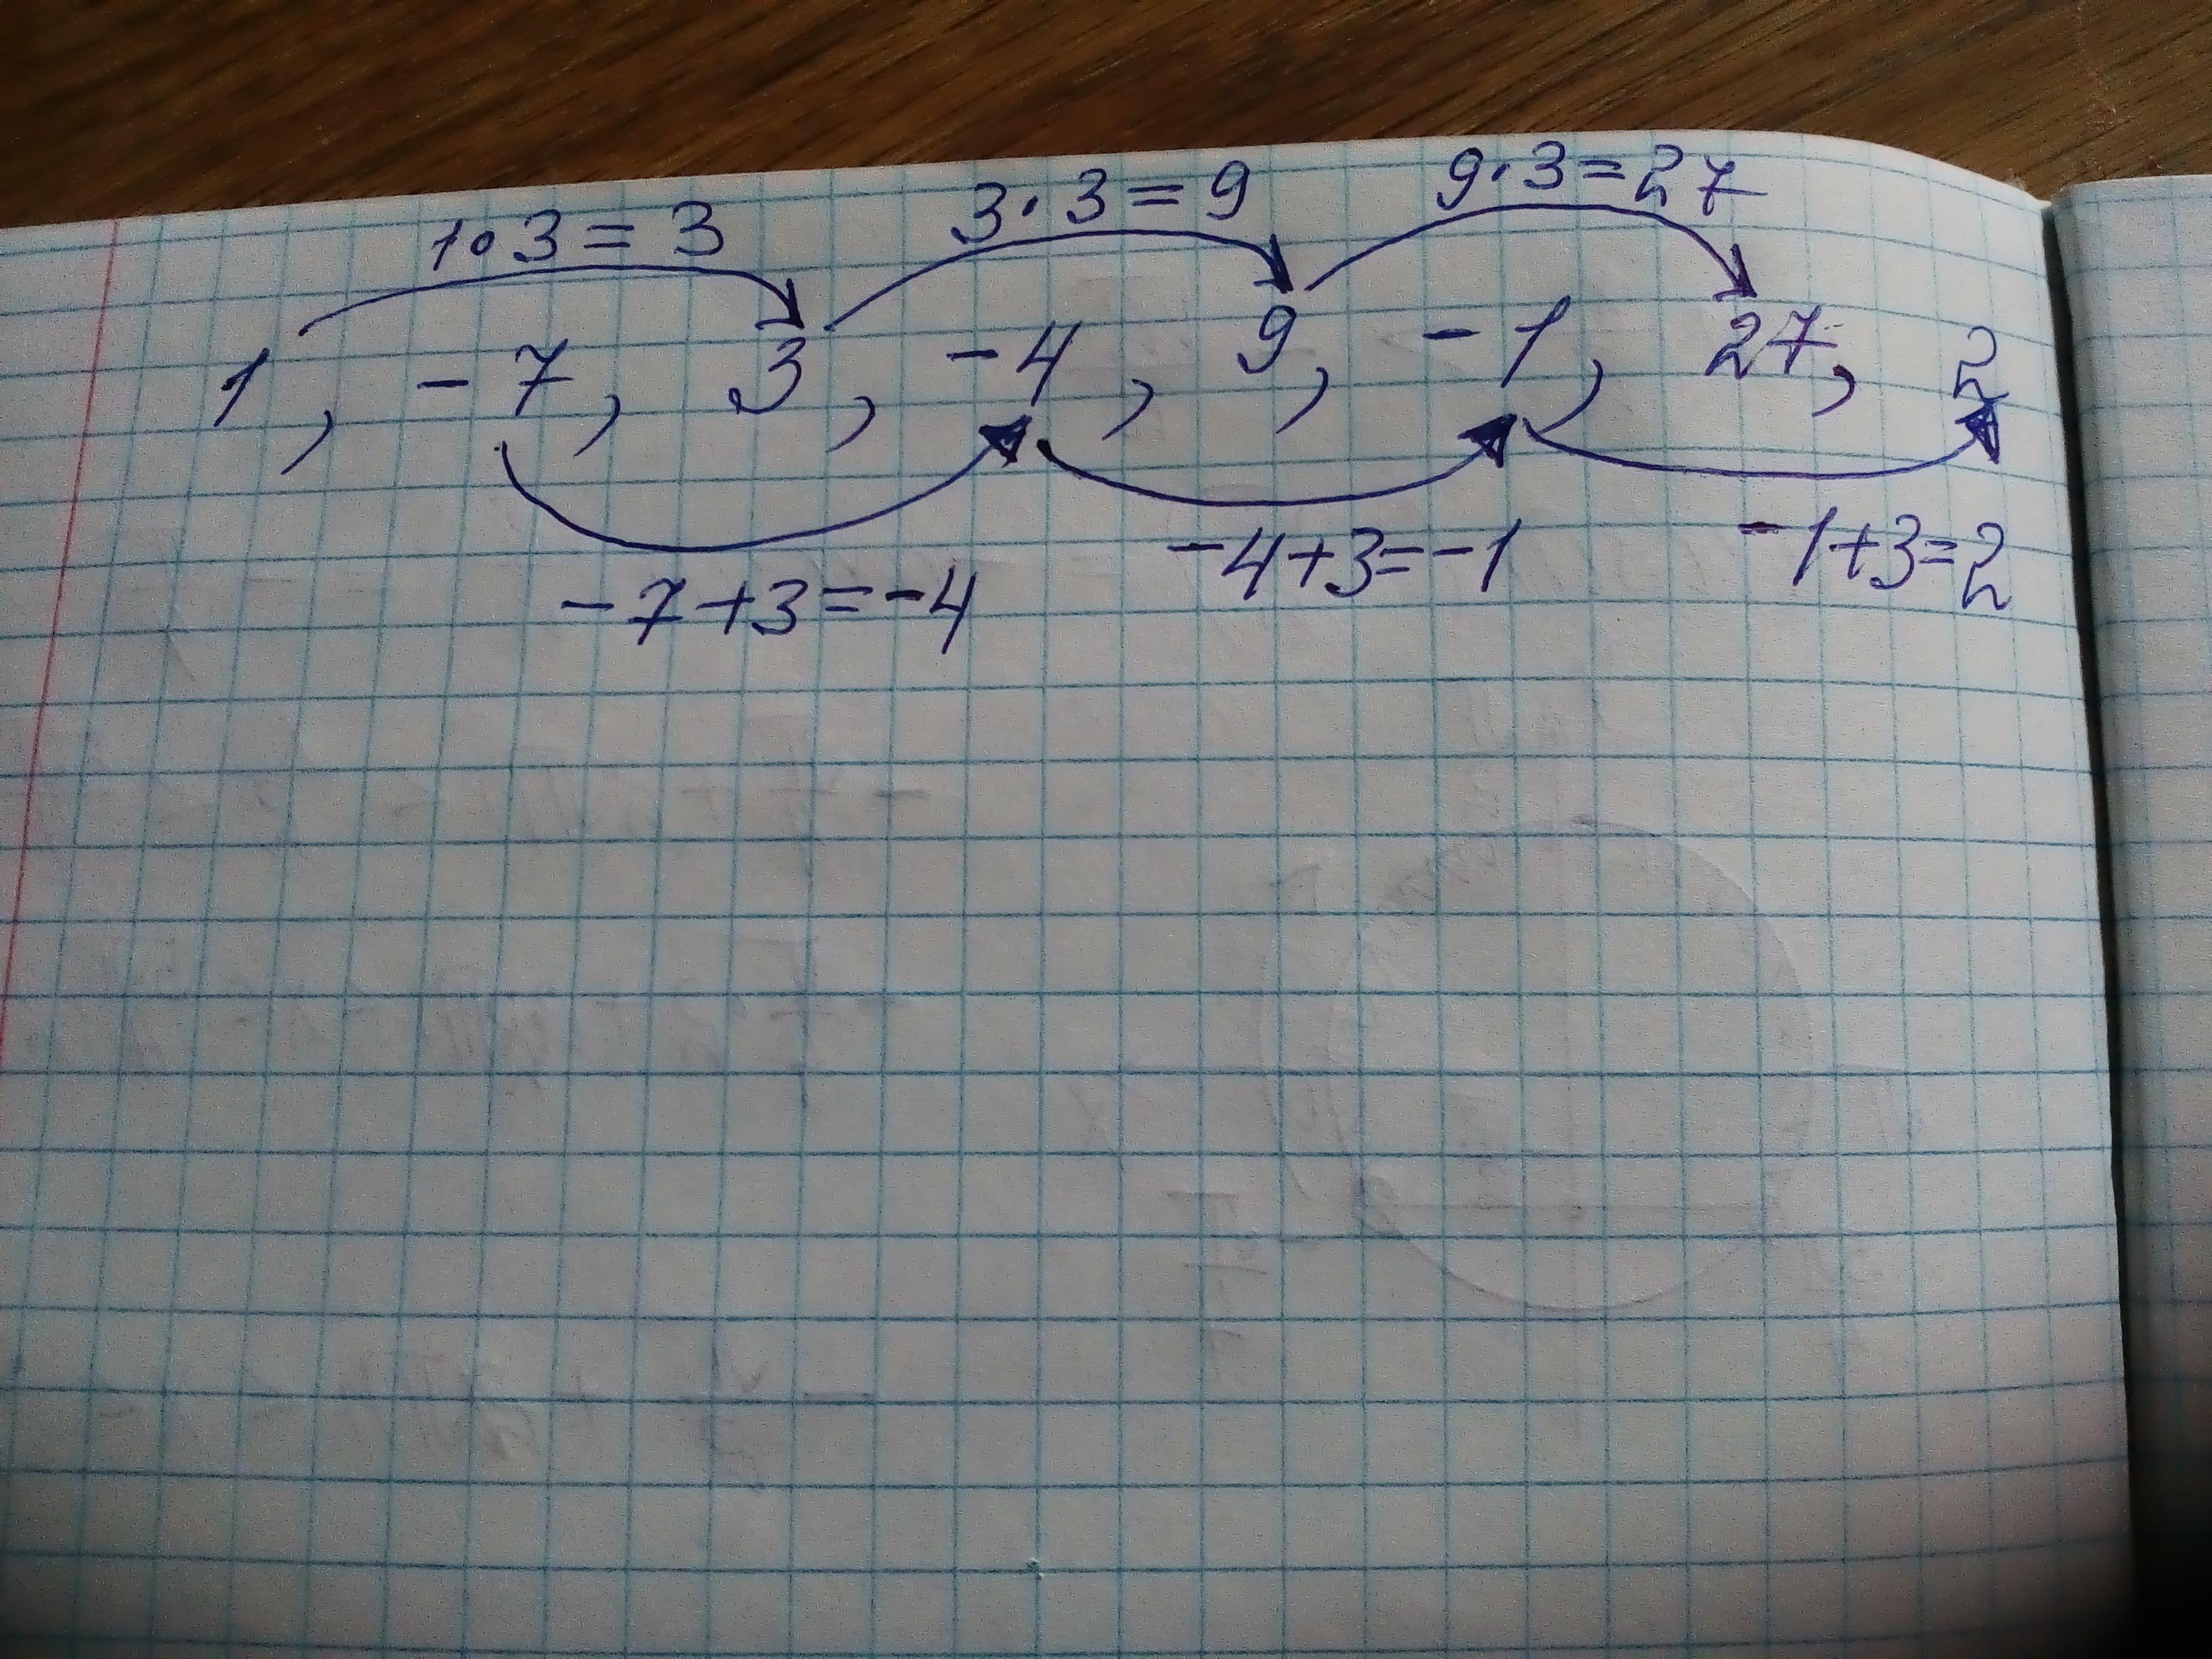 1·3=3 3·3=9 9·3=27
1, -7, 3, -4, 9, -1, 27, 2
-7+3=-4 -4+3=-1 -1+3=2